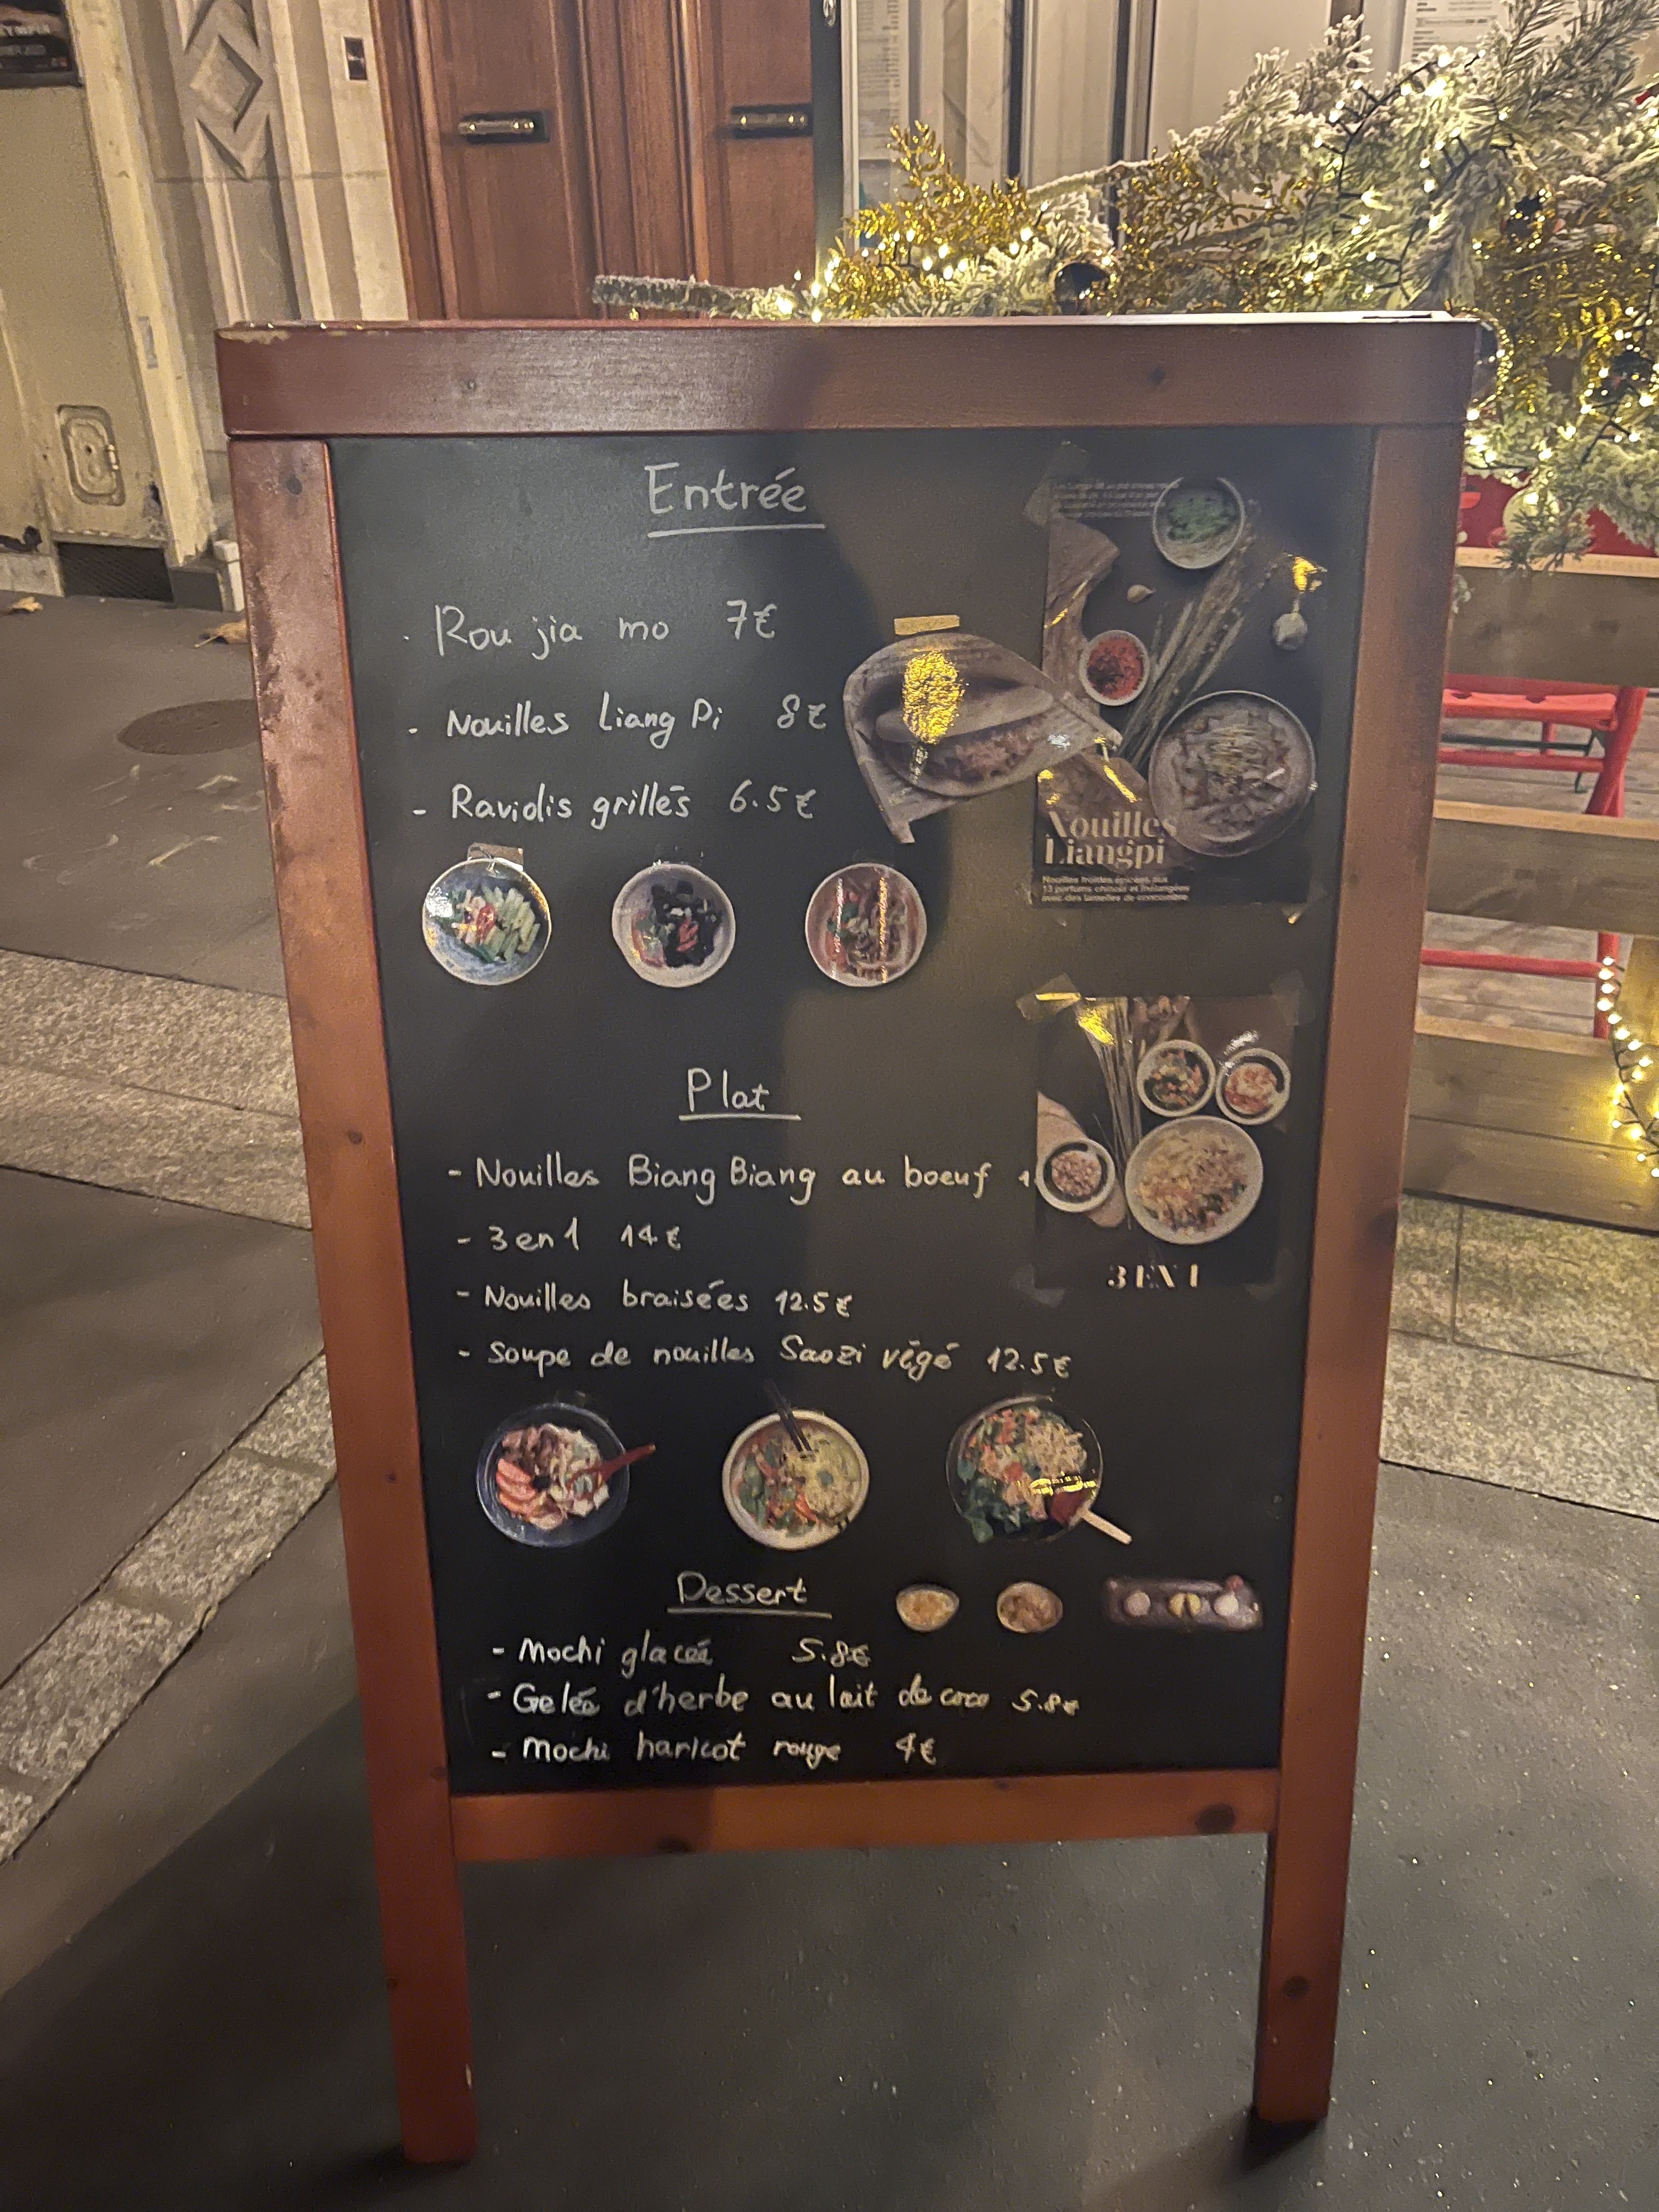 Entrée
. Rou jia mo 7€
- Nouilles Liang Pi 8€
- Raviolis grillés 6.5€
Nouilles
Liangpi
Nouilles froides épicées aux
13 parfums chinois et mélangées
avec des lamelles de concombre.
Plat
- Nouilles Biang Biang au boeuf 1
- 3 en 1 14€
- Nouilles braisées 12.5€
- Soupe de nouilles Saozi végé 12.5€
3 EN 1
Dessert
- Mochi glacé 5.8€
- Gelée d'herbe au lait de coco 5.8€
- Mochi haricot rouge 4€